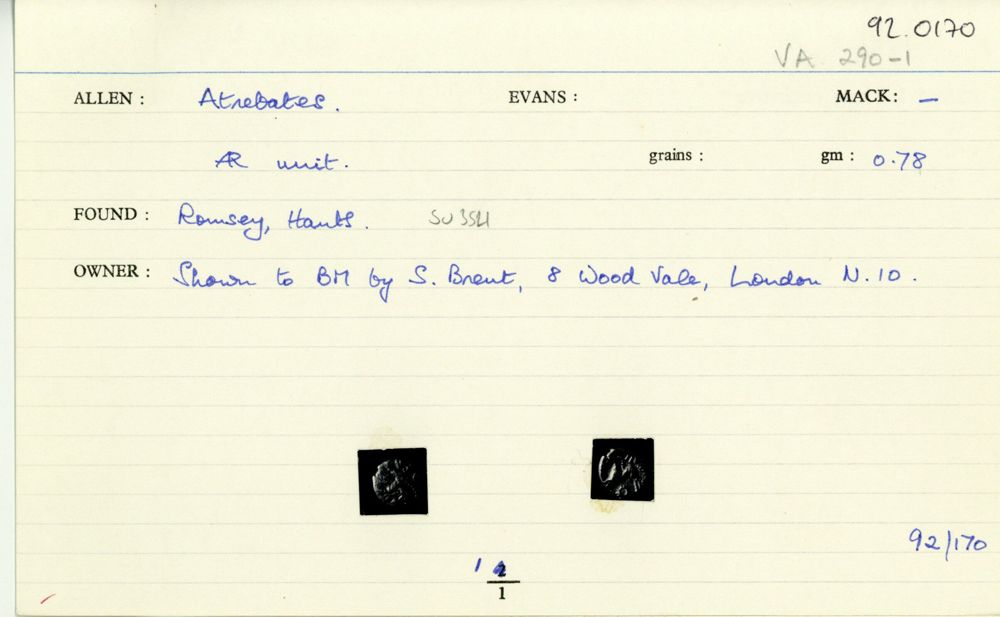 92.0170
VA 290-1
ALLEN : Atrebates. EVANS : MACK: —
AR unit. grains : gm : 0.78
FOUND : Romsey, Hants. SU 3521
OWNER : Shown to BM by S. Brent, 8 Wood Vale, London N.10.
92/170
1
1